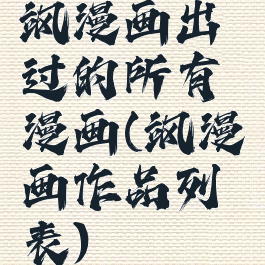 飒漫画出
过的所有
漫画(飒漫
画作品列
表)